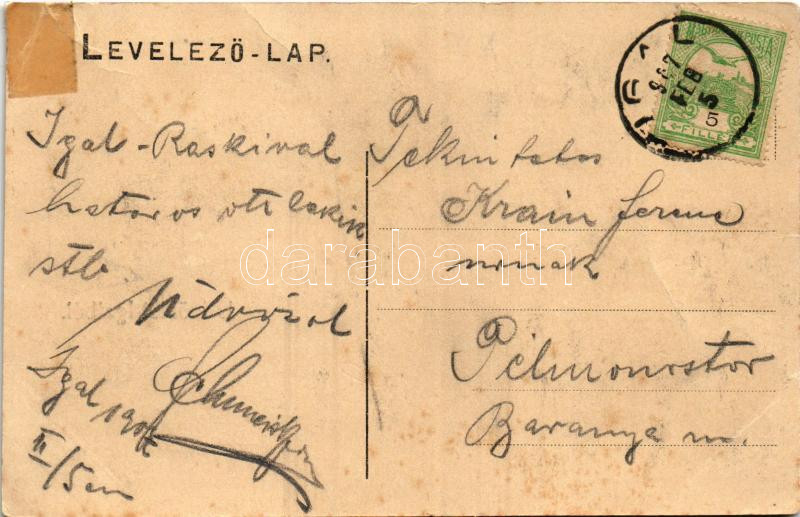 LEVELEZŐ-LAP.
Igal-Raskival
hataros ott lakik
stb.
Üdvözöl
Igal
II/5én
Tekintetes
Krain Ferenc
urnak
Pélmonostor
Baranya m.
IGAL
907
FEB
5
5
FILLÉR
darabanth